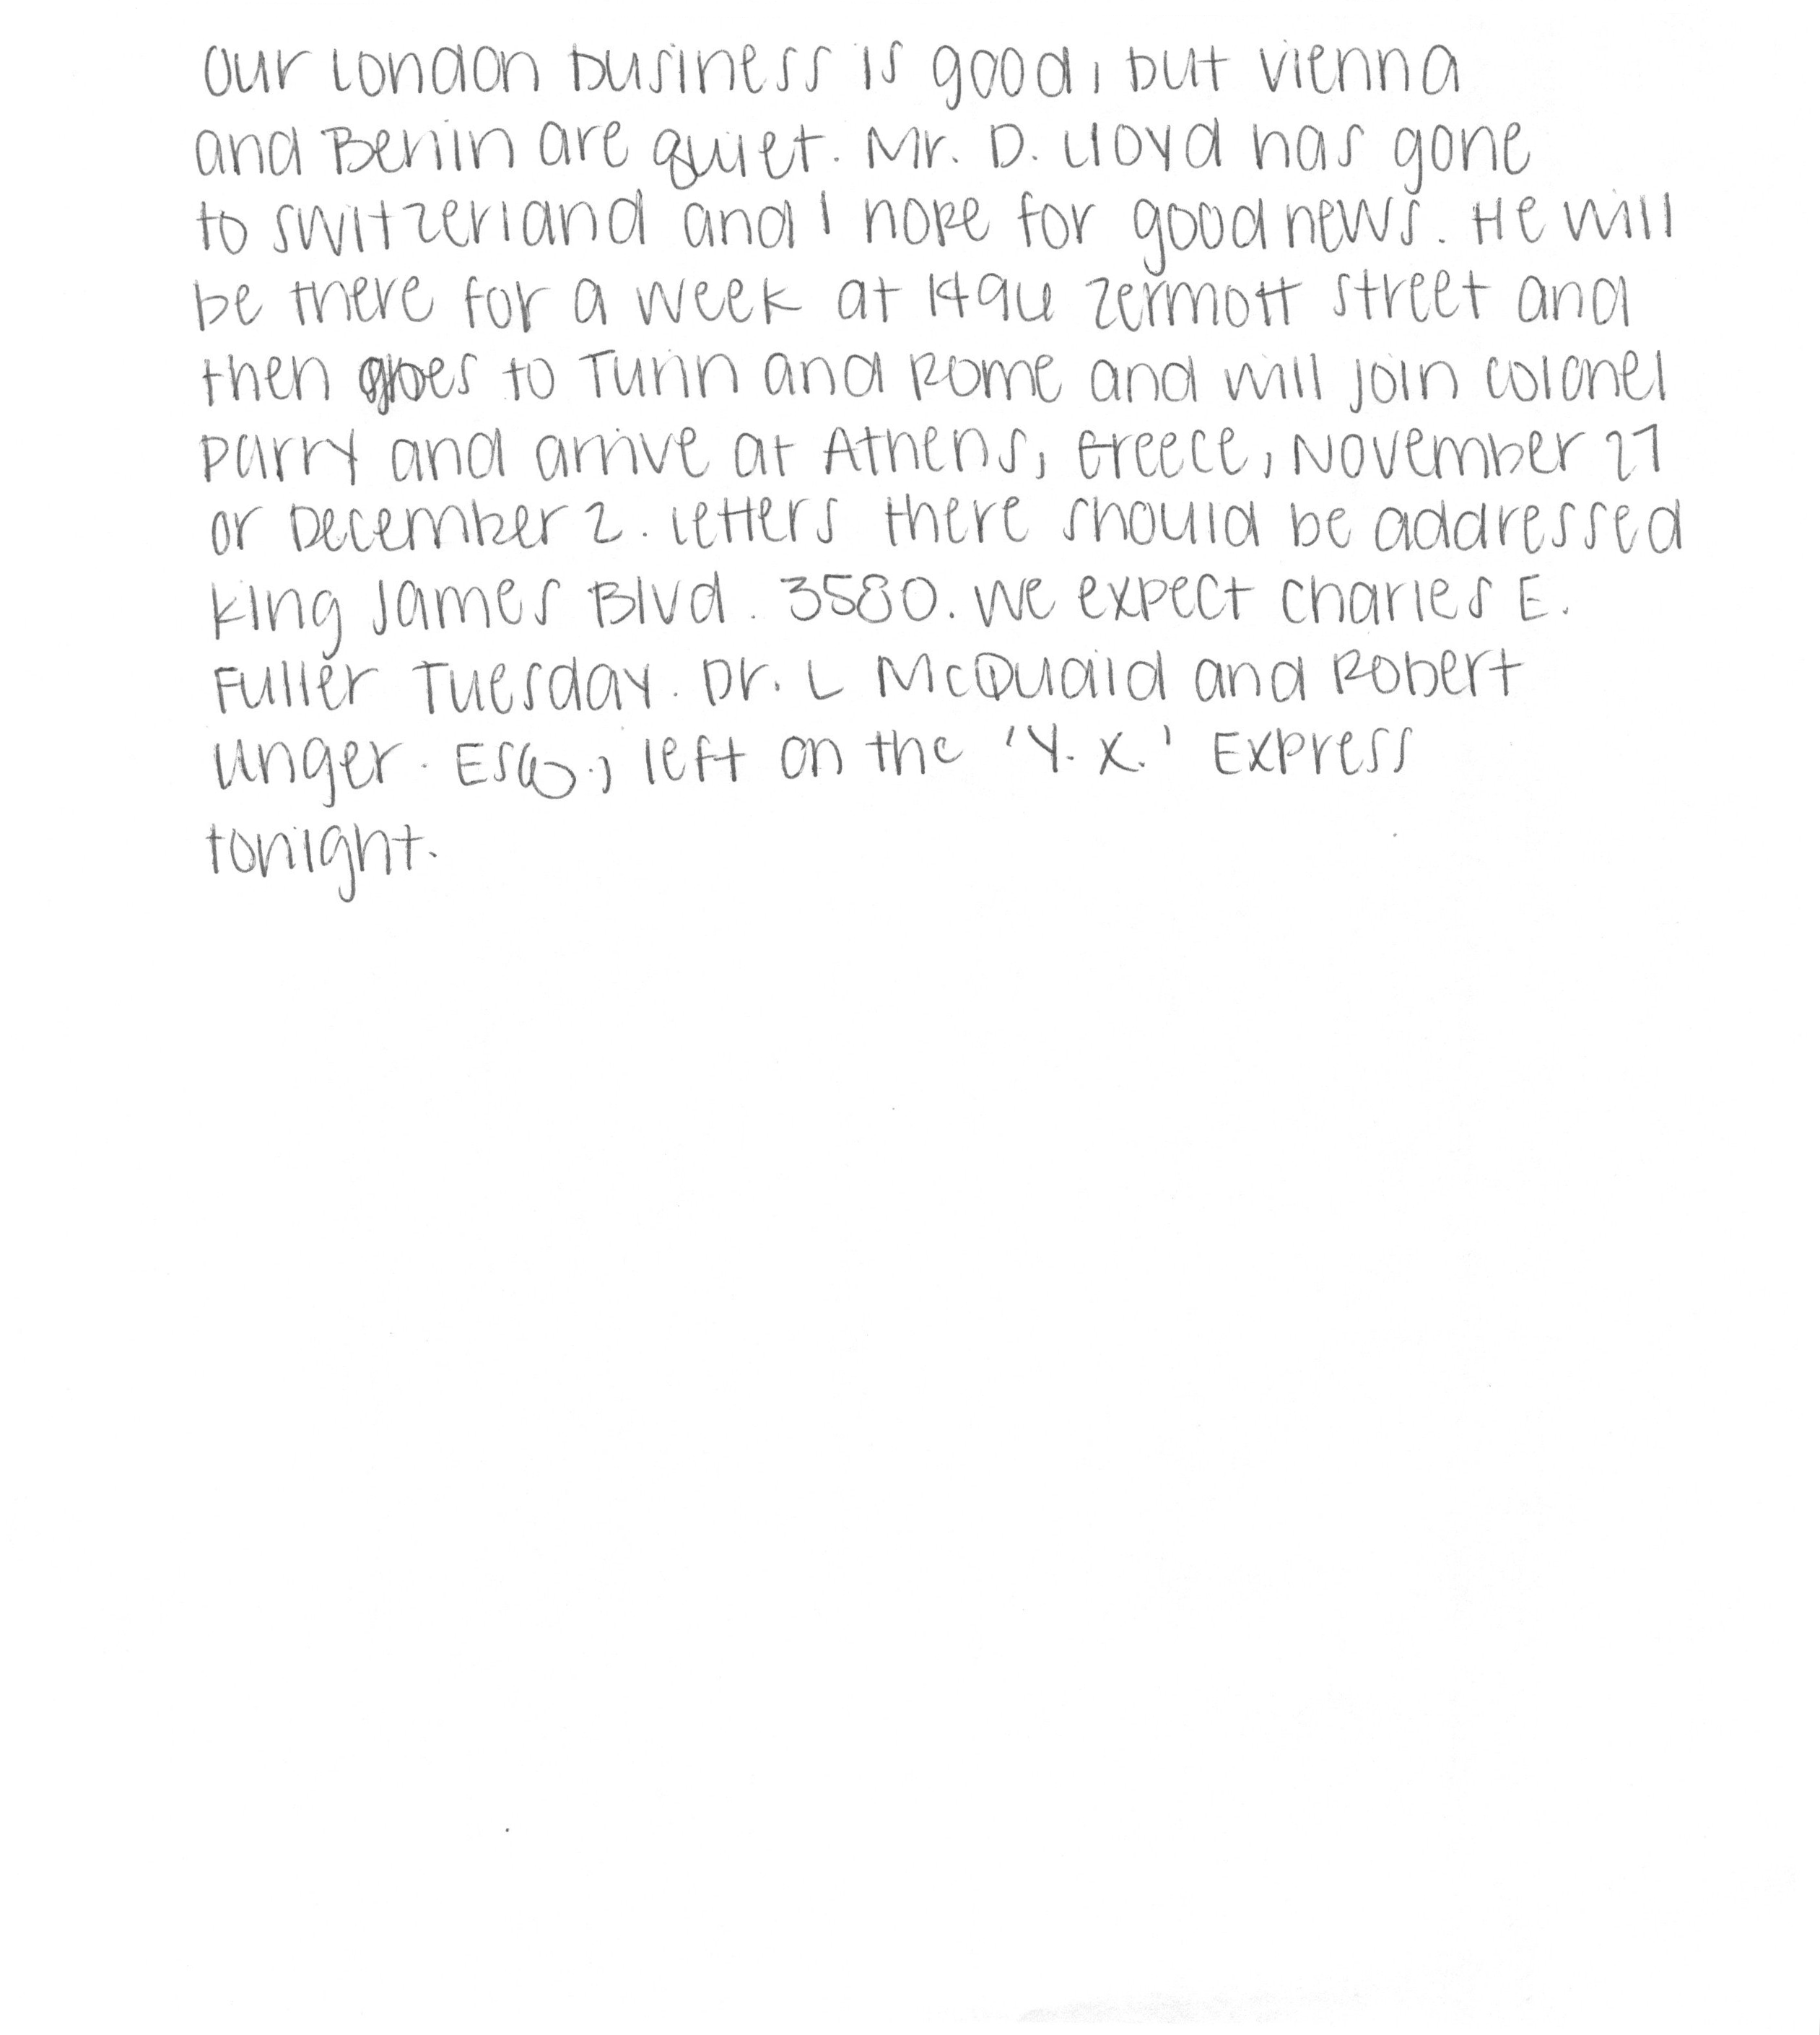 Our London business is good, but Vienna
and Berlin are quiet. Mr. D. Lloyd has gone
to Switzerland and I hope for good news. He will
be there for a week at 1496 Zermott Street and
then goes to Turin and Rome and will join Colonel
Parry and arrive at Athens, Greece, November 27
or December 2. Letters there should be addressed
King James Blvd. 3580. We expect Charles E.
Fuller Tuesday. Dr. L McQuaid and Robert
Unger. Esq., left on the 'Y. X.' Express
tonight.